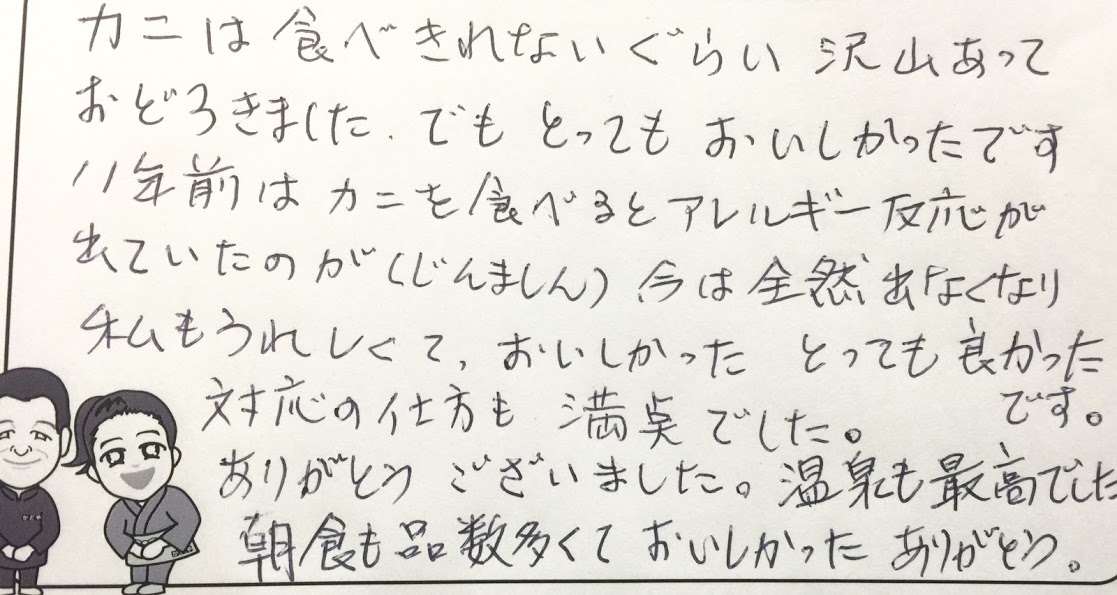 カニは食べきれないぐらい沢山あって
おどろきました、でもとってもおいしかったです
11年前はカニを食べるとアレルギー反応が
出ていたのが(じんましん)今は全然出なくなり
私もうれしくて、おいしかった とっても良かった
です。
対応の仕方も満点でした。
ありがとうございました。温泉も最高でした
朝食も品数多くておいしかった ありがとう。